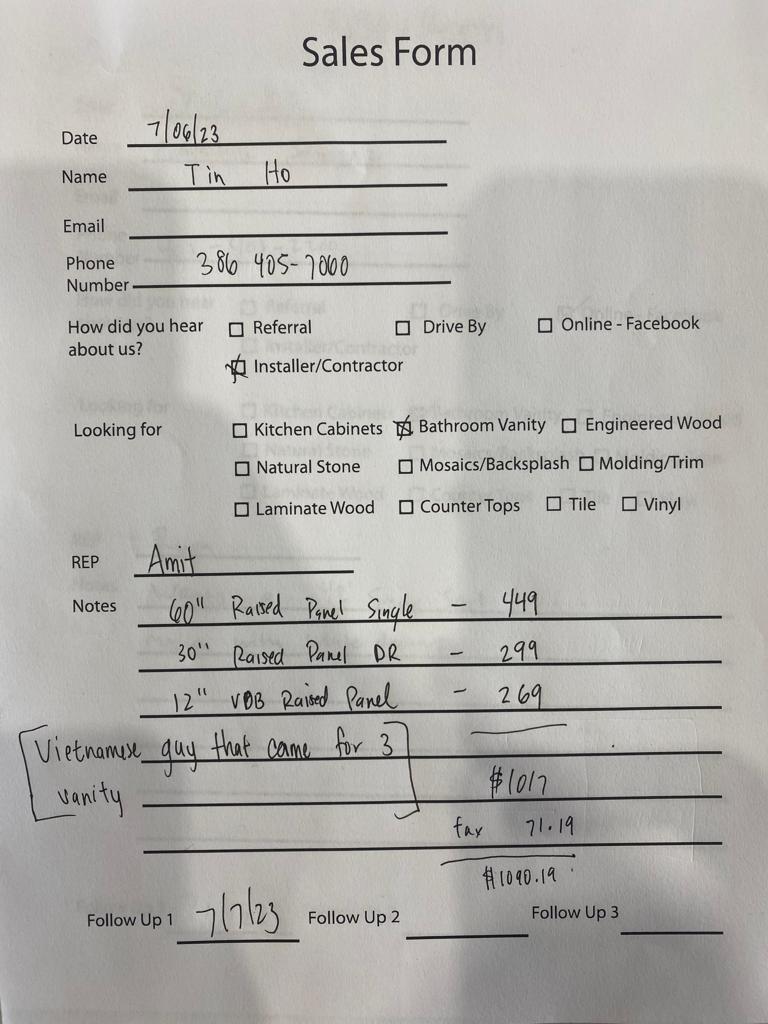 Sales Form
Date 7/06/23
Name Tin Ho
Email
Phone
Number 386 405-7000
How did you hear
about us?
Referral Drive By Online - Facebook
Installer/Contractor
Looking for
Kitchen Cabinets Bathroom Vanity Engineered Wood
Natural Stone Mosaics/Backsplash Molding/Trim
Laminate Wood Counter Tops Tile Vinyl
REP Amit
Notes 60" Raised Panel Single - 449
30" Raised Panel DR - 299
12" VDB Raised Panel - 269
Vietnamese guy that came for 3
vanity
$1017
tax 71.19
$1090.19
Follow Up 1 7/7/23 Follow Up 2 Follow Up 3